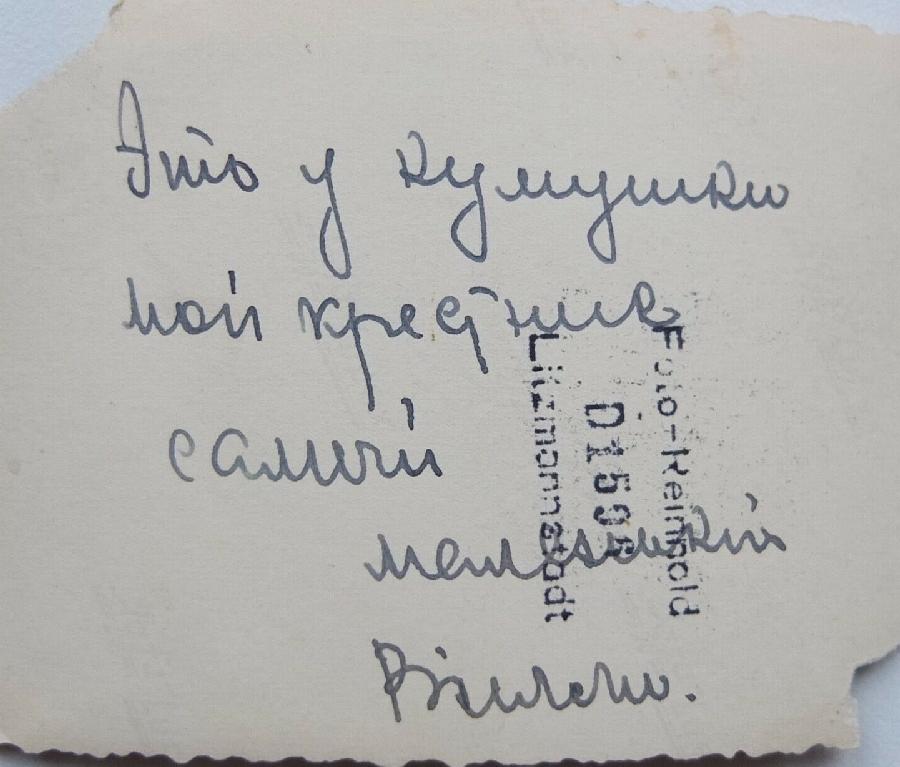 Это у кумушки
мой крестник
самый
маленький
Foto-Reinhold
D159
Litzmannstadt